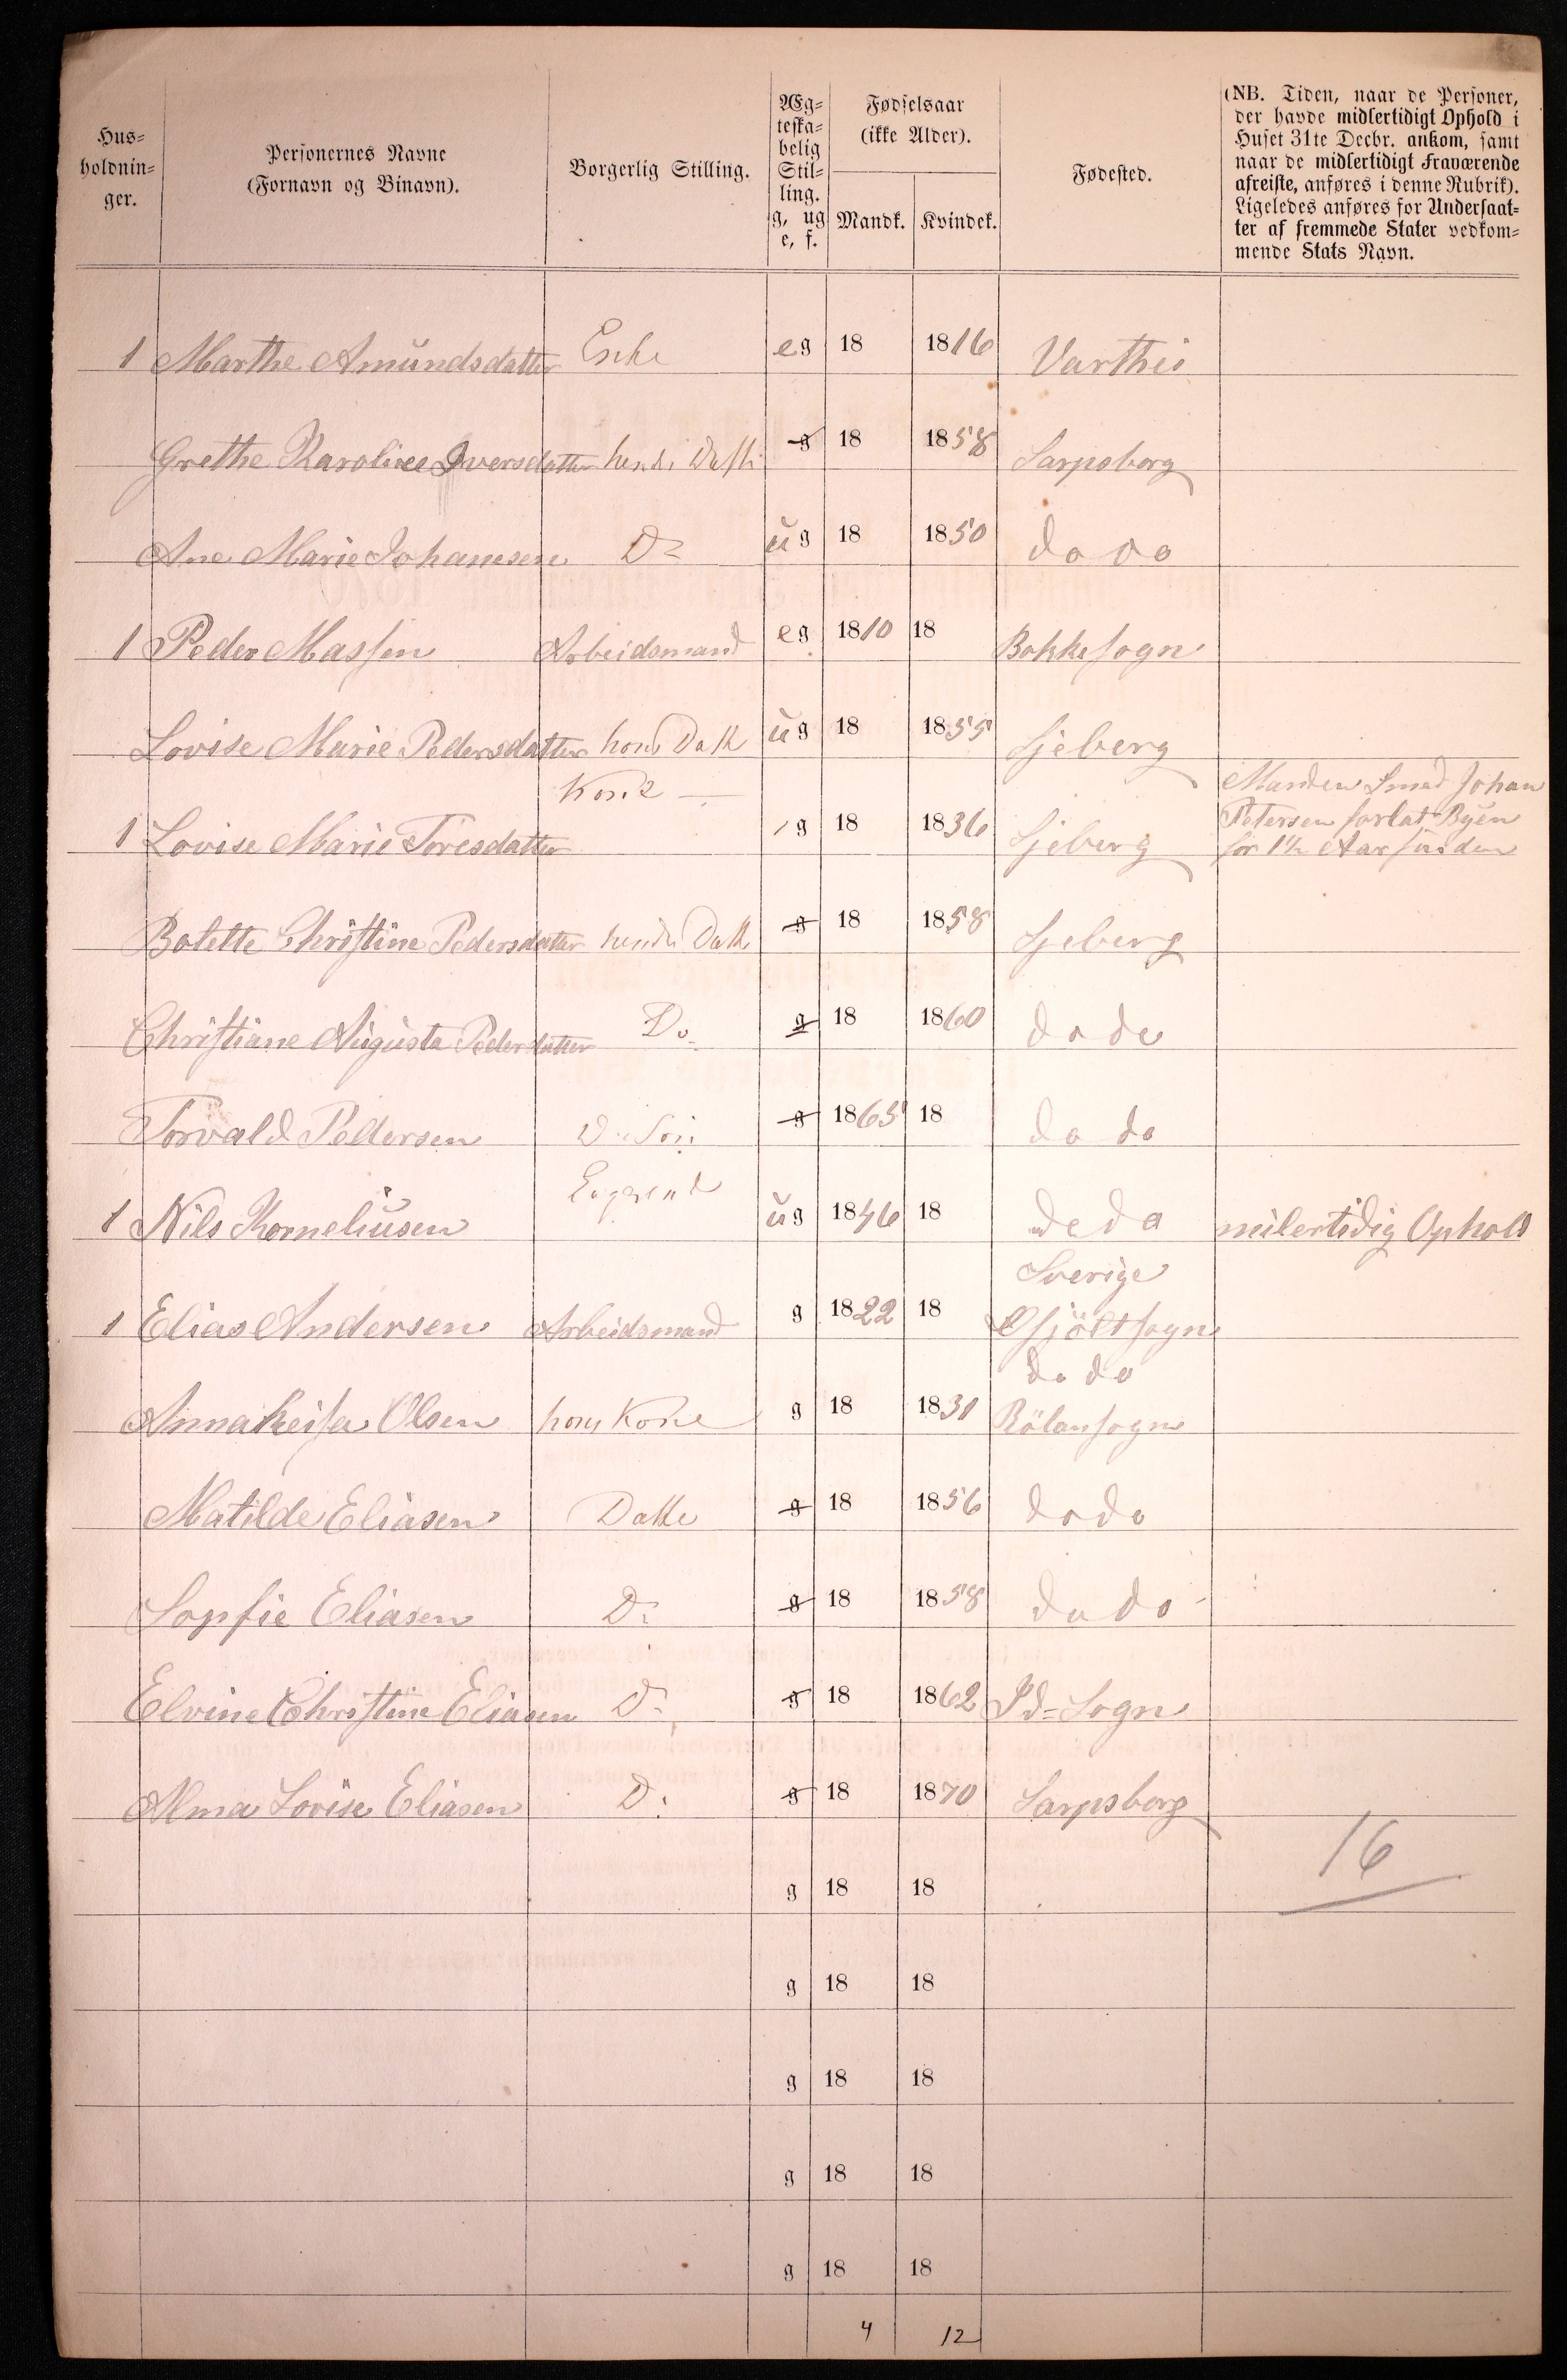 Hus=
holdnin=
ger.
Personernes Navne
(Fornavn og Binavn).
Borgerlig Stilling.
Æg=
teska=
belig
Stil=
ling.
g, ug
e, f.
Fødselsaar
(ikke Alder).
Mandk.
Kvindek.
Fødested.
(NB. Tiden, naar de Personer,
der havde midlertidigt Ophold i
Huset 31te Decbr. ankom, samt
naar de midlertidigt Fraværende
afreiste, anføres i denne Rubrik).
Ligeledes anføres for Undersaat=
ter af fremmede Stater vedkom=
mende Stats Navn.
1 Marthe Amundsdatter Enke eg 18 1816 Varthei
Grethe Karoline Iversdatter hendes Datter g 18 1858 Sarpsborg
Ane Marie Johannsen Do ug 18 1850 do do
1 Peder Massen Arbeidsmand eg 1810 18 Bakkesogn
Lovise Marie Pedersdatter hans Datt ug 18 1855 Sjeberg
Kone
Manden Smed Johan
Petersen forlat Byen
for 1½ Aar siden
1 Lovise Marie Toresdatter g 18 1836 Sjeberg
Bolette Christine Pedersdatter hendes Datt g 18 1858 Sjeberg
Christiane Augusta Pedersdatter Do g 18 1860 do do
Torvald Pedersen D. Søn g 1865 18 do do
1 Nils Korneliusen ug 1846 18 do do milertidig Ophold
Sverige
1 Elias Andersen Arbeidsmand g 1822 18
do do
Annaleisa Olsen hans Kone g 18 1831 Rölansogn
Matilde Eliasen Datter g 18 1856 do do
Sopfie Eliasen Do g 18 1858 do do
Elvine Christine Eliasen Do g 18 1862 Id=Sogn
Alma Lovise Eliasen Do g 18 1870 Sarpsborg
16
g 18 18
g 18 18
g 18 18
g 18 18
g 18 18
4 12